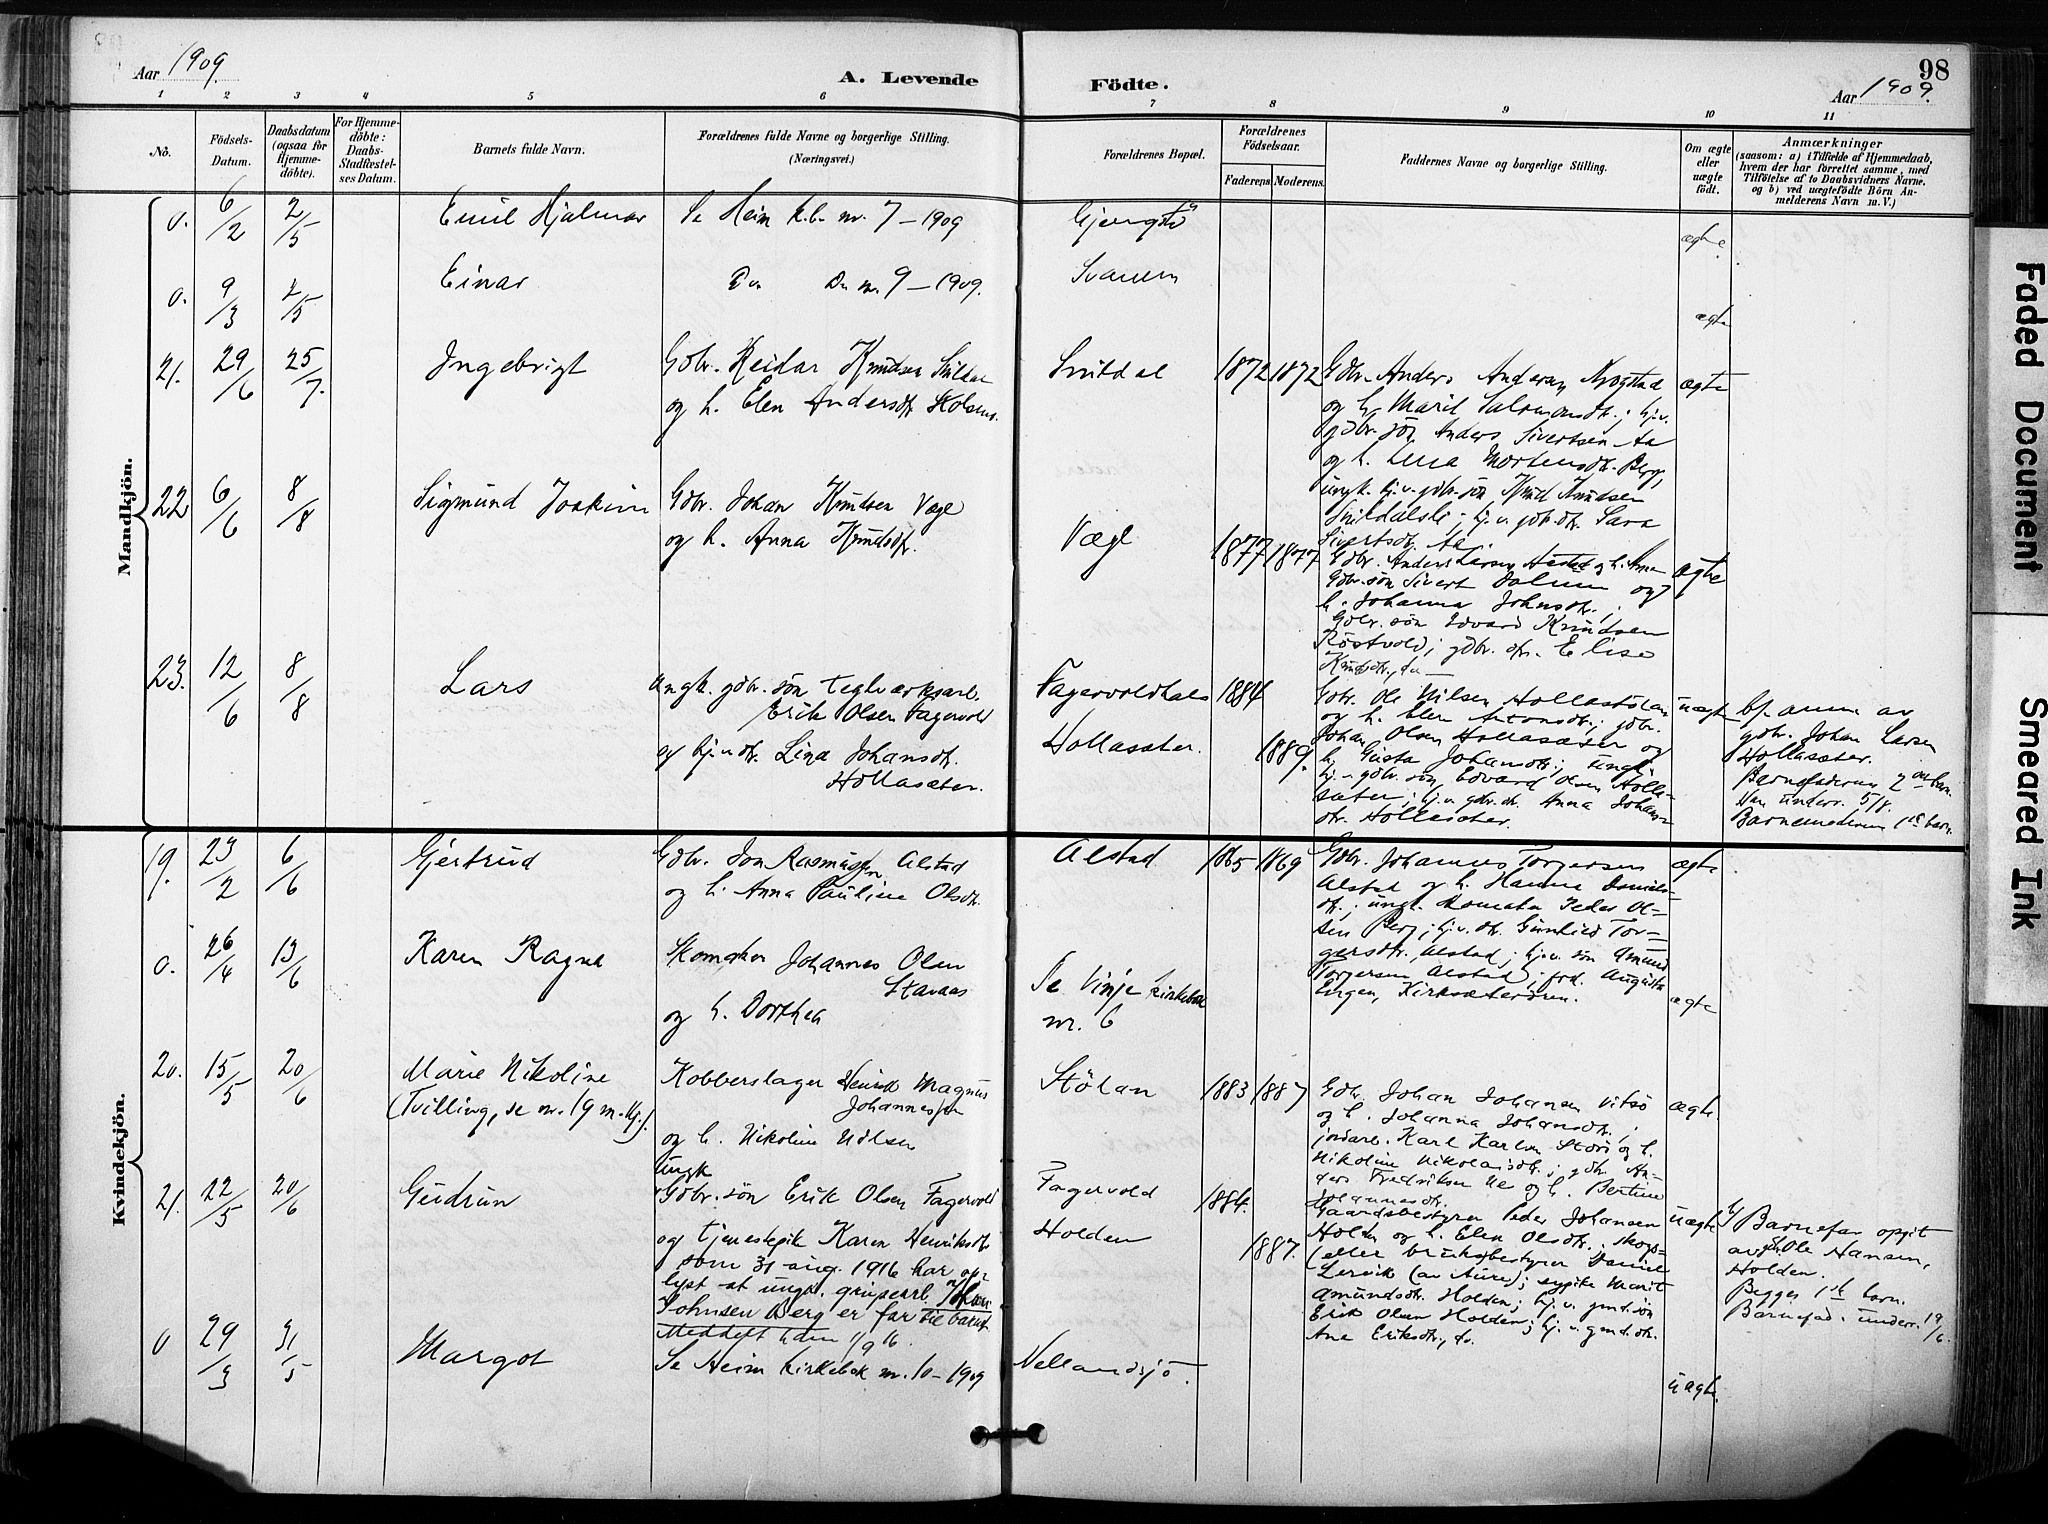 98
Aar 1909.
A. Levende
Födte.
Aar 1909.
1 2 3 4 5 6 7 8 9 10 11
No.
Födsels-Datum.
Daabsdatum (ogsaa for Hjemmedöbte).
For Hjemmedöbte: Daabs-Stadfestelses Datum.
Barnets fulde Navn.
Forældrenes fulde Navne og borgerlige Stilling.
(Næringsvei.)
Forældrenes Bopæl.
Forældrenes Födselsaar.
Faderens.
Moderens.
Faddernes Navne og borgerlige Stilling.
Om ægte eller uægte födt.
Anmærkninger
(saasom: a) i Tilfælde af Hjemmedaab, hvem der har forrettet samme, med Tilföielse af to Daabsvidners Navne, og b) ved uægtefödte Börn Anmelderens Navn m. V.)
Mandkjön.
0. 6/2 2/5 Emil Hjalmar Se Heim k.b. nr. 7 – 1909 ægte
0. 9/3 2/5 Einar Do Do nr. 9 – 1909. Svanem ægte
21. 29/6 25/7. Ingebrigt Gdbr. Reidar Knudsen Snildal
og h. Elen Andersdtr. Snildal 1872 1872 ægte
Gdbr. Anders Andersen
og h. Marit Salomonsdtr.; hj.v.
gdbr. sön Anders Sivertsen Aa
og h. Lena Mortensdtr. Berg,
ungk. hj.v. gdbr. sön Knud Knudsen
Snildalsli; hj.v. gdbr. dtr. Sara
Sivertsdtr. Aa
22 6/6 8/8 Sigmund Joakim Gdbr. Johan Knudsen Vægl
og h. Anna Knudsdtr. Vægl 1877 1877 ægte
Gdbr. Anders Larsen og h. Anna
Gdbr. sön Sivert Dalum og
h. Johanna Johnsdtr.;
Gdbr. sön Edvard Knudsen
Röstvold; gdbr. dtr. Elise
Knudsdtr., do —
23. 12/6 8/8 Lars Ungk. gdbr. sön teglværksarb.
Erik Olsen Fagervold
og hj.v. dtr. Lina Johansdtr.
Hollasæter. Fagervold 1884
Hollasæter. 1889. uægte
Gdbr. Ole Nilsen Hollastölan
og h. Elen Antonsdtr.; gdbr.
Johan Olsen Hollasæter og
h. Gusta Johansdtr.; ungk.
hj.v. gdbr. sön Edvard Olsen Hollasæter;
hj.v. gdbr. dtr. Anna Johansdtr.
Hollasæter.
anm. av
gdbr. Johan Larsen
Hollasæter.
Barnefaderens 2det barn.
Han underr. 5/8.
Barnemoderens 1ste barn.
Kvindekjön.
19. 23/2 6/6 Gjertrud Gdbr. Jon Rasmussen Alstad
og h. Anna Pauline Olsdtr. Alstad 1865 1869 ægte
Gdbr. Johannes Torgersen
Alstad og h. Hanna Danielsdtr.;
ungk. skomaker Peder Olsen
Berg; hj.v. dtr. Gunhild Torgersdtr.
Alstad; hj.v. sön Amund
Torgersen Alstad; frk. Augusta
Engen, Kirksæterören.
0. 26/4 13/6 Karen Ragna Skomaker Johannes Olsen
Stavaas
og h. Dorthea Se Vinje kirkebok
nr. 6 ægte
20. 15/5 20/6 Marie Nikoline
(Tvilling, se nr. 19 m.kj.) Kobberslager Henrik Magnus
Johannessen
og h. Nikoline Nilsen Stölan 1883 1887 ægte
Gdbr. Johan Johansen Vitsö
og h. Johanna Johansdtr.;
jordarb. Karl Karlsen Stöle og h.
Nikoline Nikolaisdtr.; gdbr. Anders
Fredriksen Ue og h. Bertine
Johannesdtr.
21. 22/5 20/6 Gudrun Ungk
Gdbr. sön Erik Olsen Fagervold
og tjenestepik Karen Henriksdtr.
som 31 aug. 1916 har oplyst
at ungk. grubearb. Johan
Johnsen Berg er far til barnet.
Meddelt hdem 1/9 16. Fagervold 1884.
Holden 1887. uægte
Gaardsbestyrer Peder Johansen
Holden og h. Elen Olsdtr.; skogs-
(eller bruksbestyrer) Daniel
Lervik (av Aure); sypike Marit
Amundsdtr. Holden; hj.v. gmd. sön
Erik Olsen Holden; hj.v. gmd. dtr.
Ane Eriksdtr., do.
Barnefar opgit
av Ole Hansen,
Holden.
Begges 1ste barn.
Barnefad. underr. 19/6.
0 29/3 31/5 Margot Se Heim kirkebok nr. 10 – 1909 Nellandsjö. uægte.
Faded Document
Smeared Ink